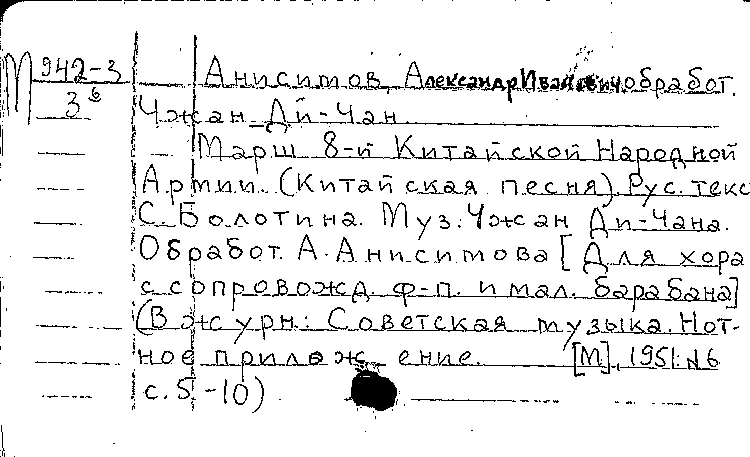 М 942-3 Анисимов, Александр Иванович, обработ.
3⁶ Чжан Ди-Чан
Марш 8-й Китайской Народной
Армии. (Китайская песня). Рус. текс
С. Болотина. Муз. Чжан Ди-Чана.
Обработ. А. Анисимова [Для хора
с сопровожд. ф-п. и мал. барабана]
(В журн.: Советская музыка. Нот-
ное прилож ение. [М], 1951. №6
с. 5-10)